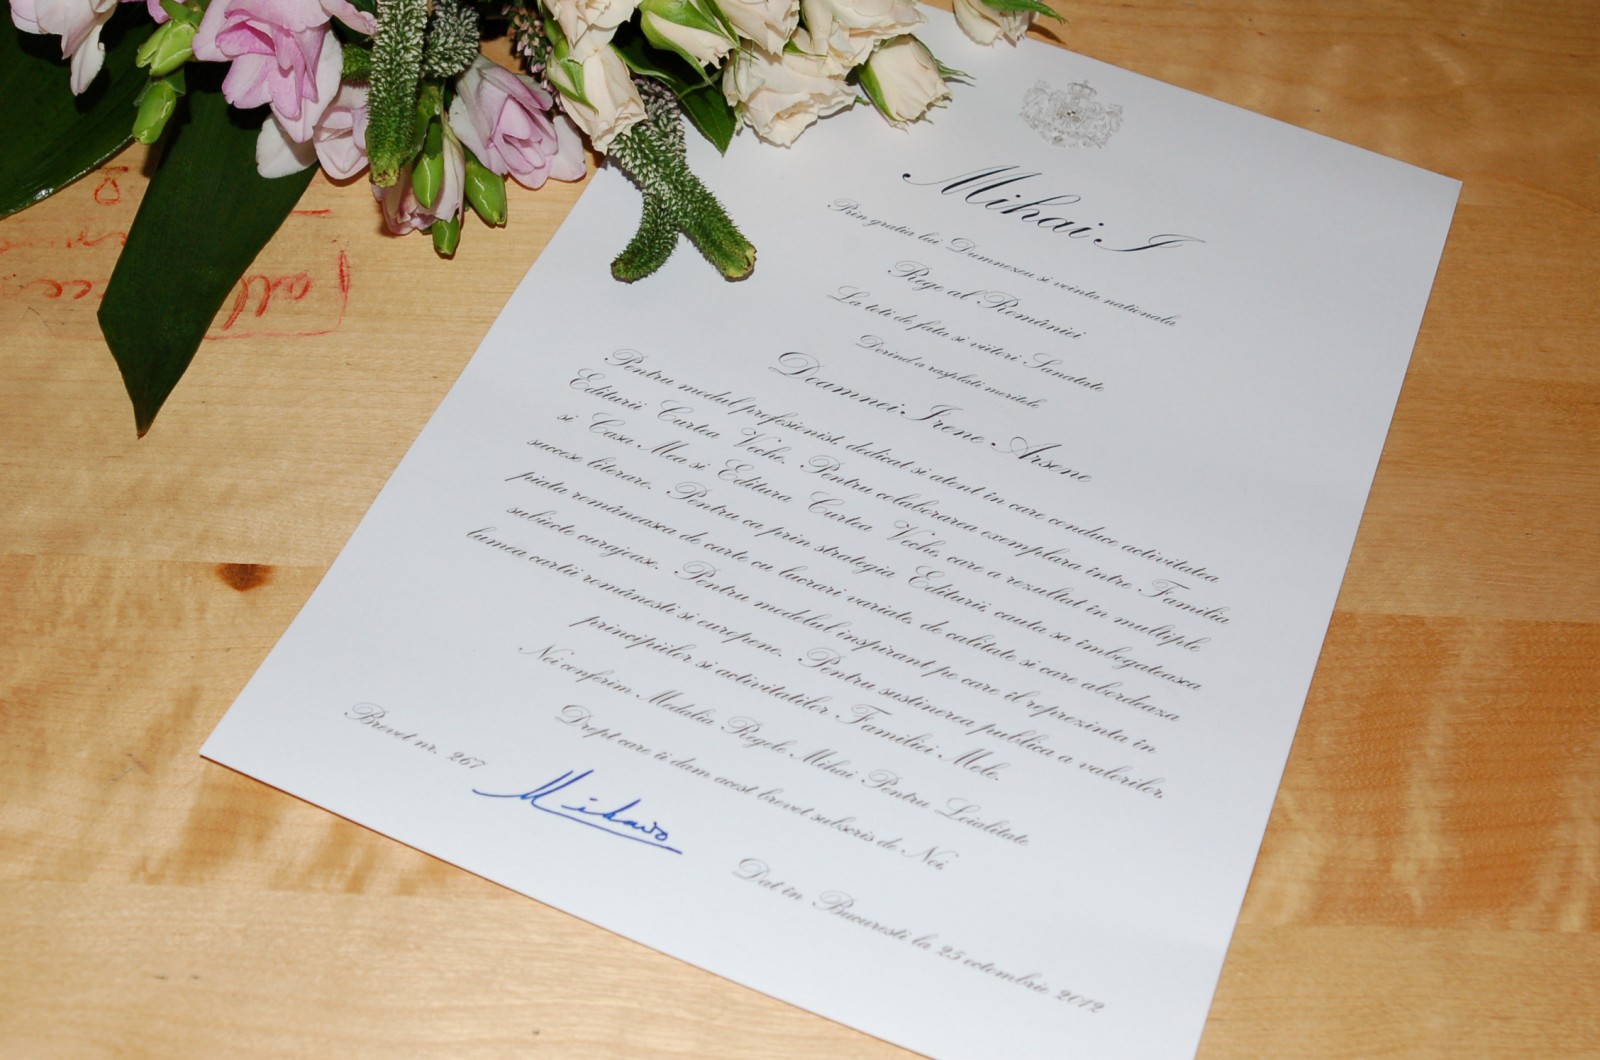 Mihai I
Prin gratia lui Dumnezeu si vointa nationala
Rege al României
La toti de fata si viitori Sanatate
Dorind a rasplati meritele
Doamnei Irene Arsene
Pentru modul profesionist, dedicat si atent în care conduce activitatea
Editurii Curtea Veche. Pentru colaborarea exemplara între Familia
si Casa Mea si Editura Curtea Veche, care a rezultat în multiple
succese literare. Pentru ca prin strategia Editurii, cauta sa îmbogateasca
piata româneasca de carte cu lucrari variate, de calitate si care abordeaza
subiecte curajoase. Pentru modelul inspirant pe care il reprezinta în
lumea cartii românesti si europene. Pentru sustinerea publica a valorilor,
principiilor si activitatilor Familiei Mele.
Noi conferim Medalia Regele Mihai Pentru Loialitate
Drept care îi dam acest brevet subscris de Noi,
Brevet nr. 267
Mihai
Dat în Bucuresti la 25 octombrie 2012